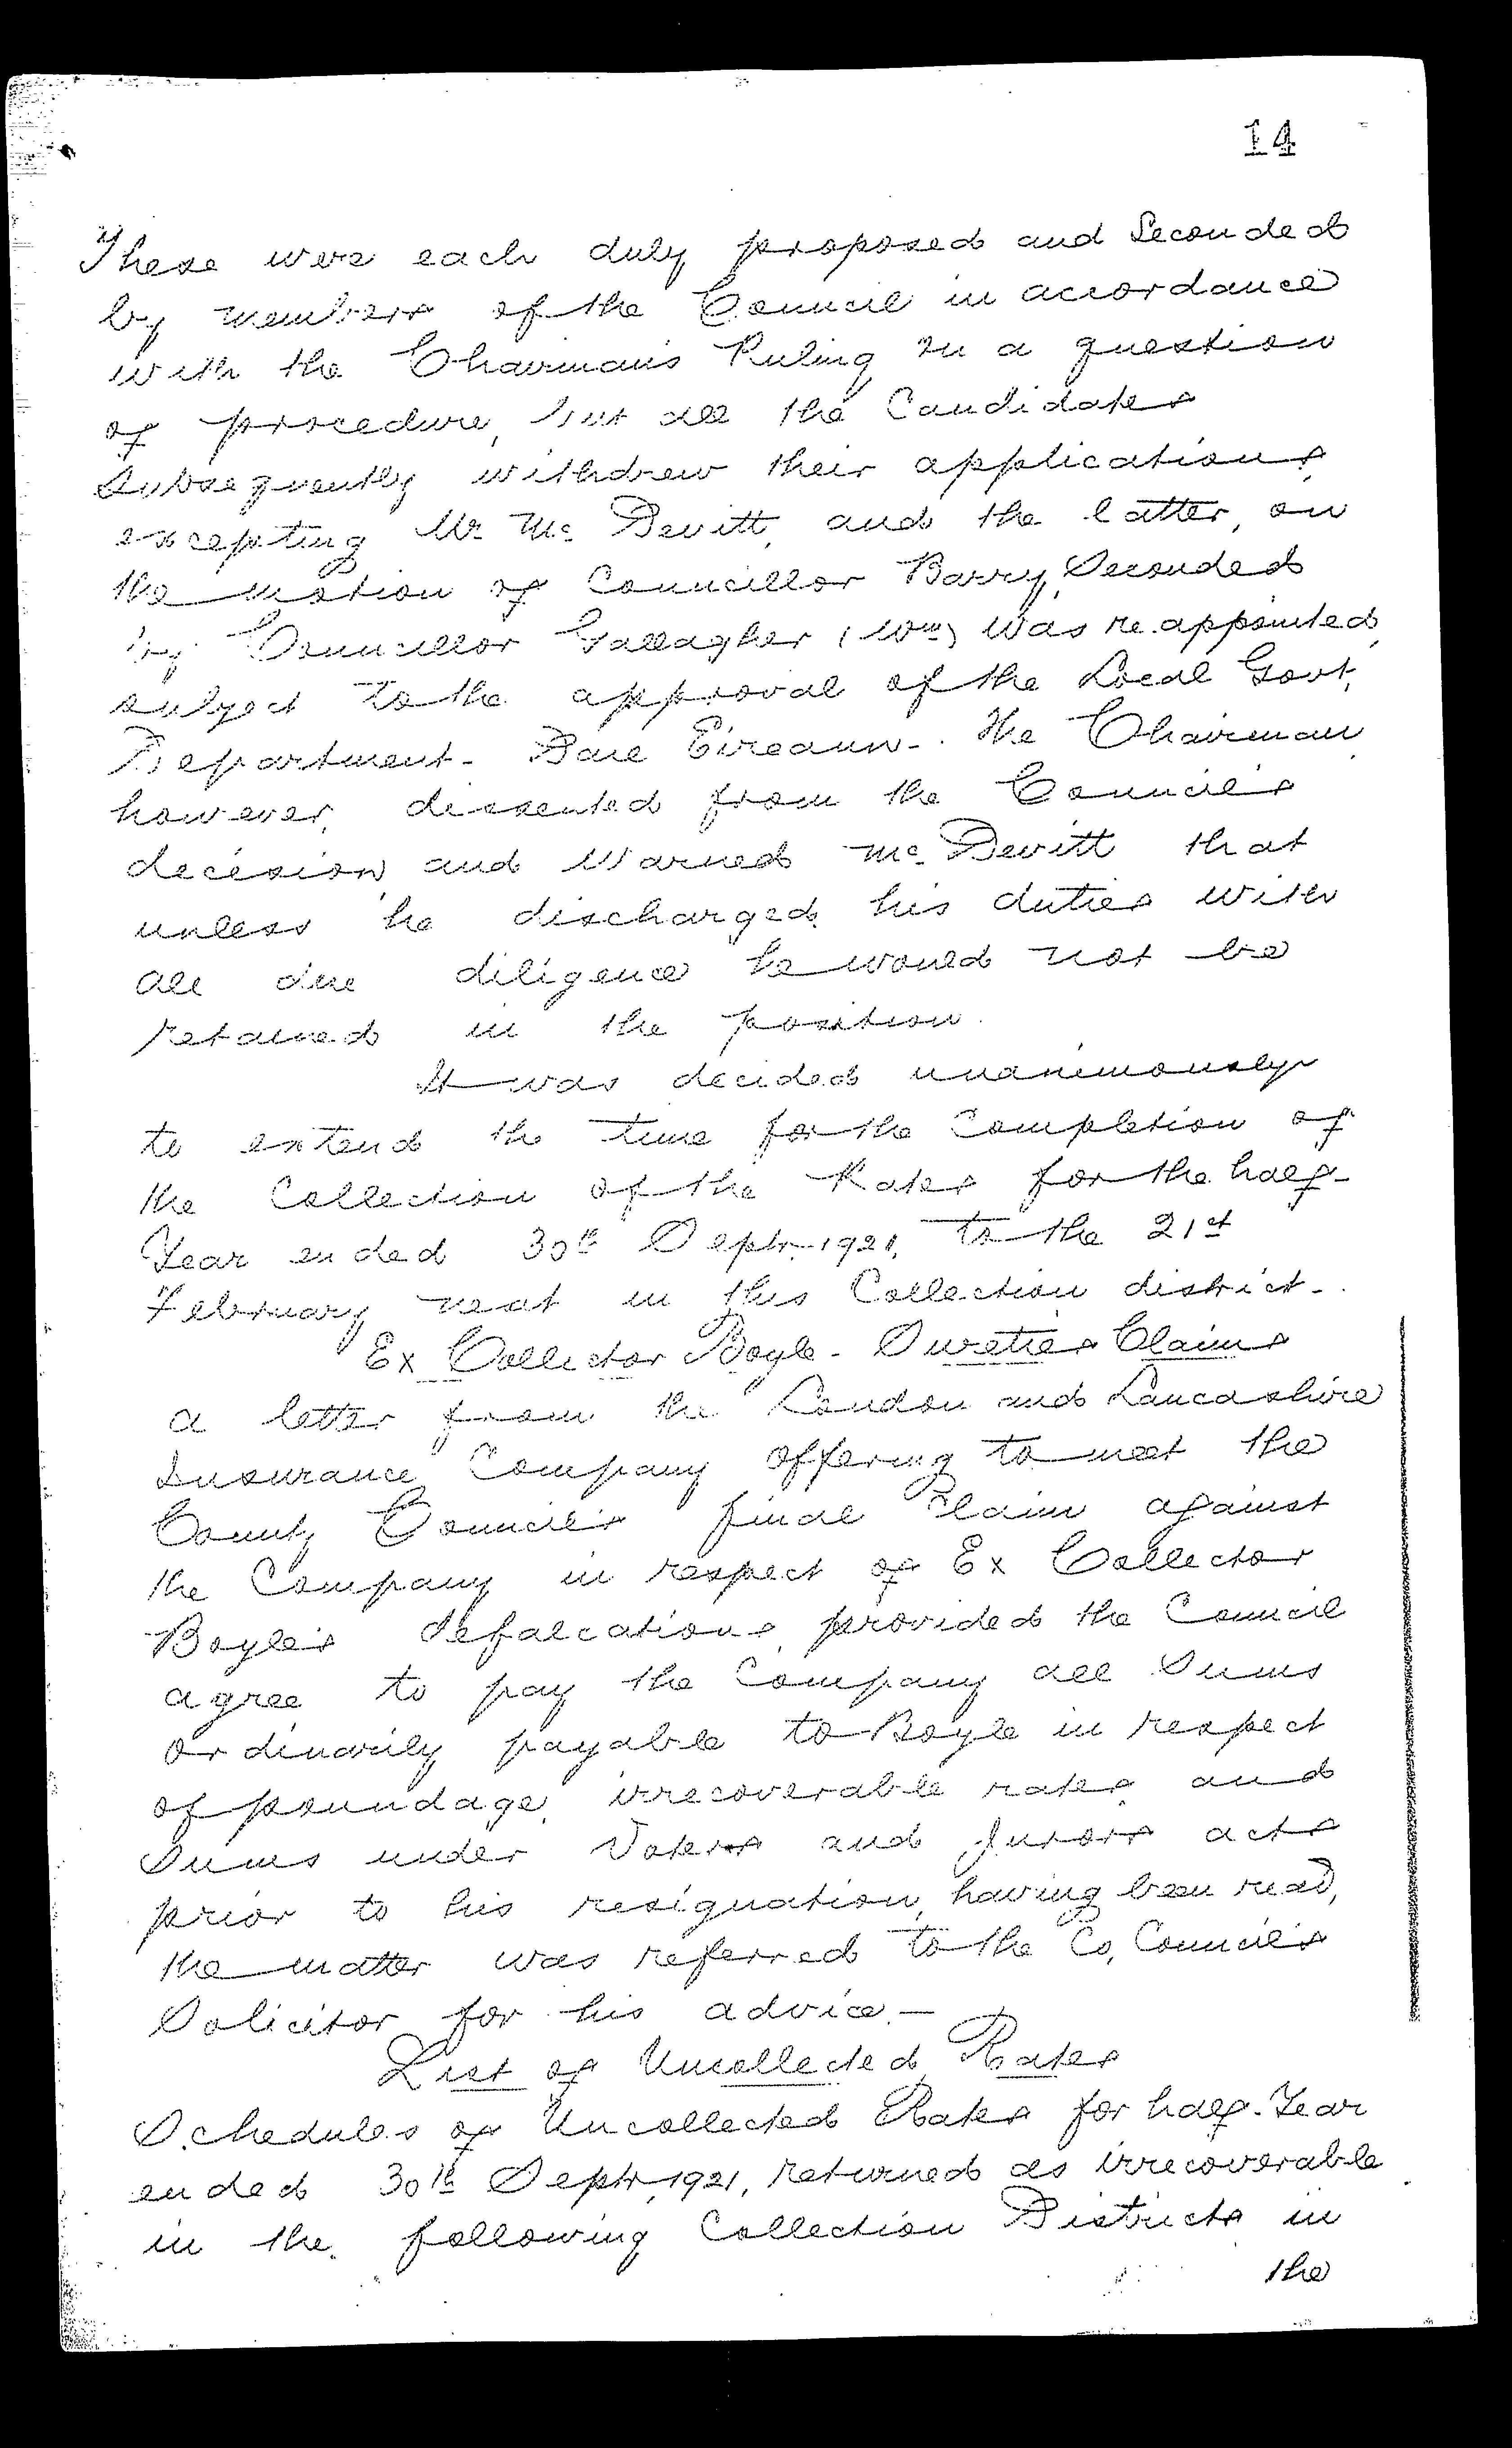 14
These were each duly proposed and Seconded
by members of the Council in accordance
with the Chairman's Ruling in a question
of procedure, but all the Candidates
subsequently withdrew their applications
excepting Mr. McDevitt, and the latter, on
the motion of Councillor Barry, Seconded
by Councillor Gallagher (Wm) was re.appointed,
subject to the approval of the Local Govt.
Department - Dail Eireann -. The Chairman,
however, dissented from the Council's
decision and warned McDevitt that
unless he discharged his duties with
all due diligence he would not be
retained in the position.
It was decided unanimously
to extend the time for the Completion of
the Collection of the Rates for the half-
Year ended 30th Septr. 1921, to the 21st
February next in this Collection district -.
Ex Collector Boyle - Sureties Claims
A letter from the London and Lancashire
Insurance Company offering to meet the
County Council's final Claim against
the Company in respect of Ex Collector
Boyle's defalcations, provided the Council
agree to pay the Company all Sums
ordinarily payable to Boyle in respect
of poundage, irrecoverable rates, and
Sums under Voters and Jurors acts
prior to his resignation, having been read,
the matter was referred to the Co. Council's
Solicitor for his advice. -
List of Uncollected Rates
Schedules of Uncollected Rates for half-Year
ended 30th Septr, 1921, returned as irrecoverable
in the following Collection Districts in
the